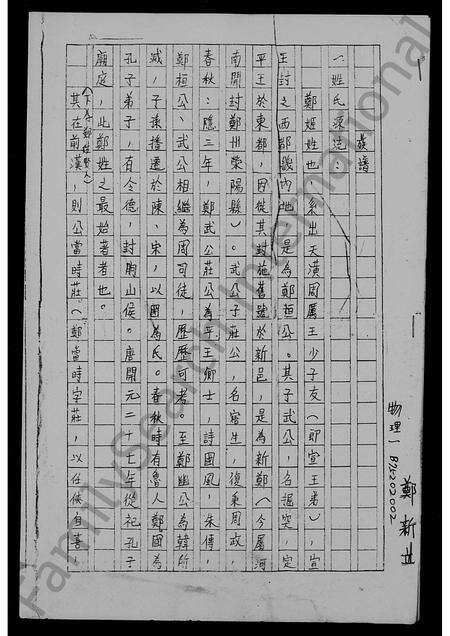 族譜
一姓氏源流：
鄭姬姓也，系出天潢周厲王少子友（即宣王弟），宣
王封之西都畿內地，是為鄭桓公。其子武公，名掘突，定
平王於東都，因徙其封施舊號於新邑，是為新鄭（今屬河
南開封鄭州滎陽縣）。武公子莊公，名寤生，復秉周政，
春秋：隱三年，鄭武公莊公為平王卿士，詩國風，朱傳，
鄭桓公、武公相繼為周司徒，歷歷可考。至鄭幽公為韓所
滅，子孫播遷於陳、宋，以國為氏。春秋時有魯人鄭國為
孔子弟子，有令德，封朐山侯。唐開元二十七年從祀孔子
廟庭，此鄭姓之最始著者也。
（下為鄭姓賢人）
其在前漢，則公當時莊（鄭當時字莊，以任俠自喜，
物理一 B75202002
鄭新立
FamilySearch International